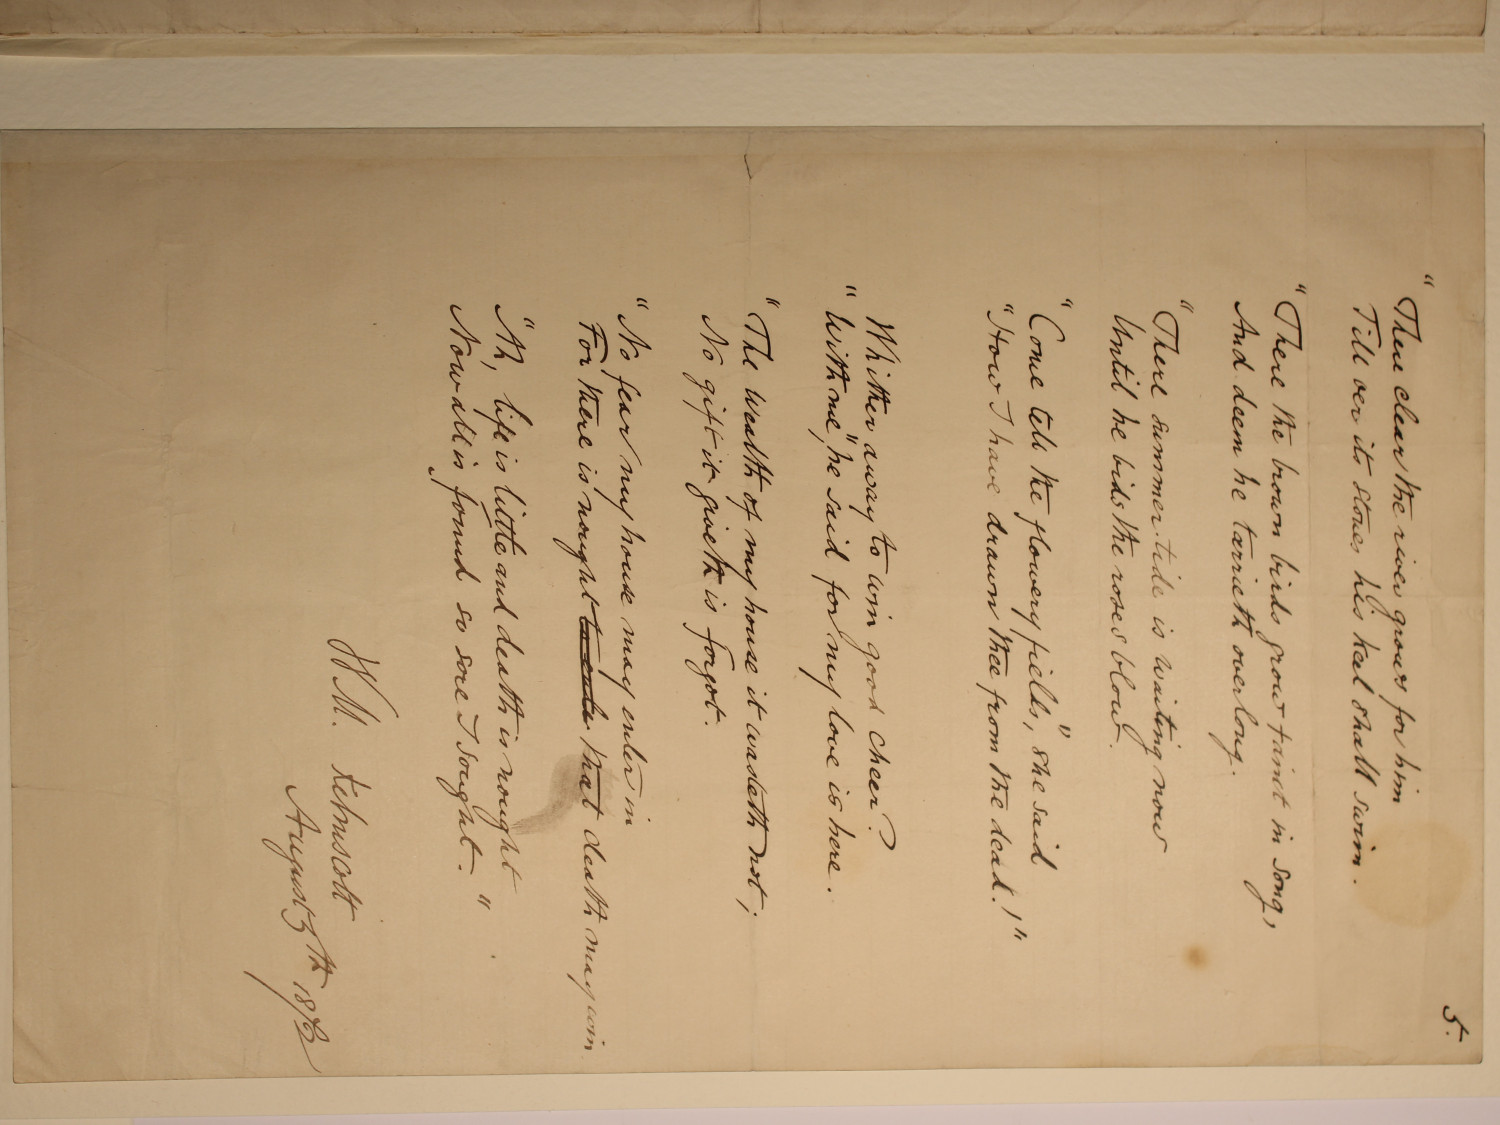 5.
"There clear the river grows for him
Till o'er its stones his keel shall swim.
"There the brown birds grow faint in song,
And deem he tarrieth overlong.
"There summer-tide is waiting now
Until he bids the roses blow.
"Come tell the flowery fields," she said
"How I have drawn thee from the dead!"
Whither away to win good cheer?
"With me," he said "for my love is here.
"The wealth of my house it wasteth not;
No gift it giveth is forgot.
"No fear my house may enter in
For there is nought that death may win
"Ah, life is little and death is nought
Now all is found so sore I sought."
W.M. Kelmscott
August 5th 1873